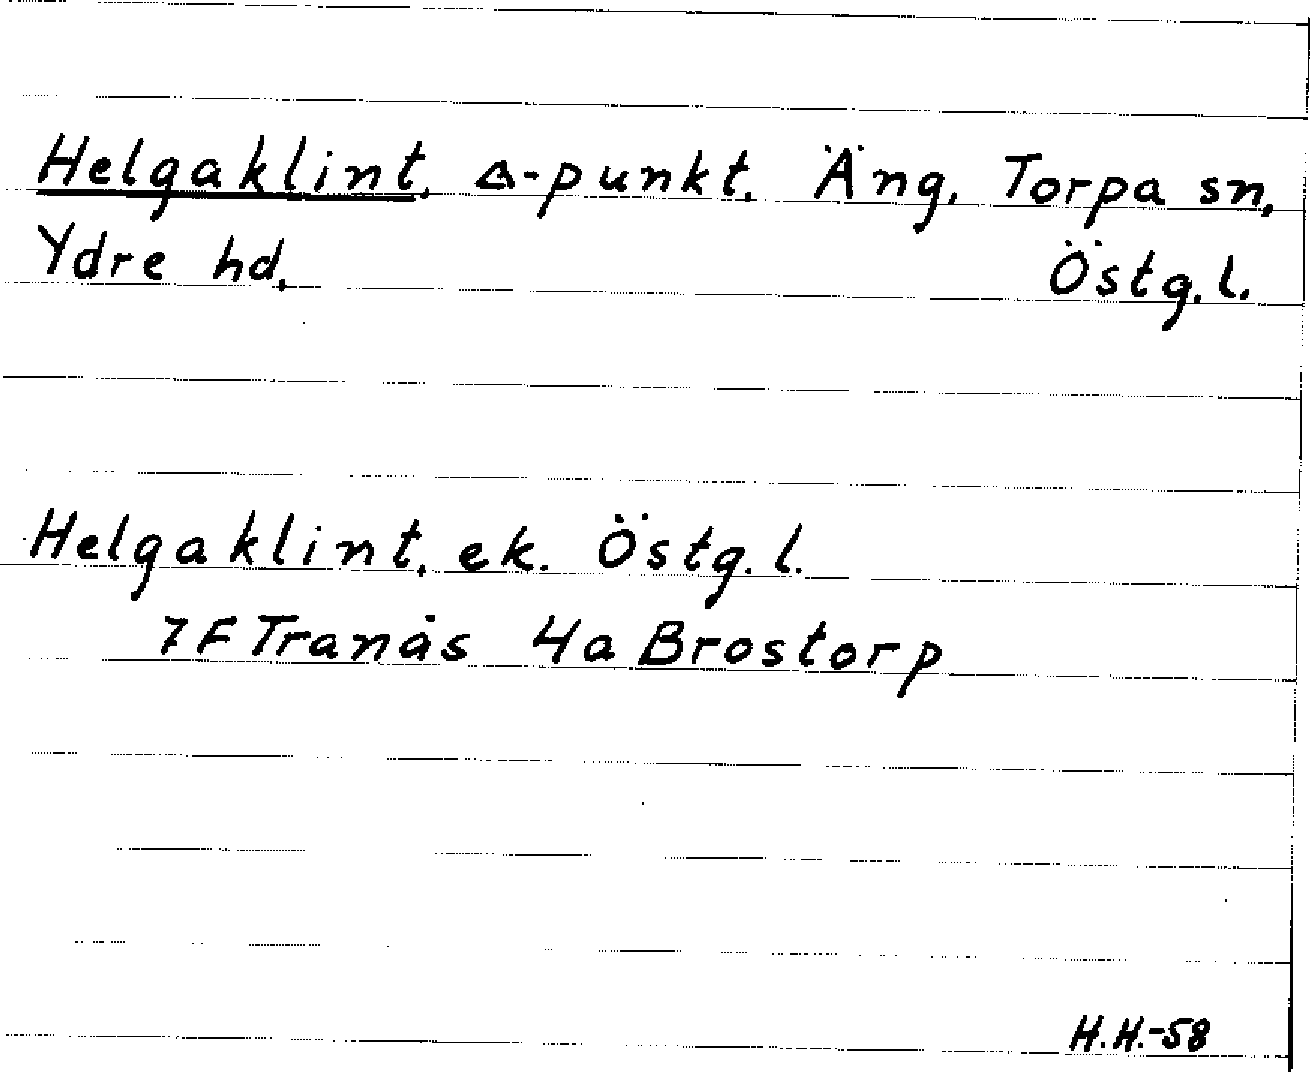 Helgaklint, Δ-punkt. Äng, Torpa sn,
Ydre hd, Östg. l.
Helgaklint, ek. Östg. l.
7F Tranås 4a Brostorp
H.H.-58